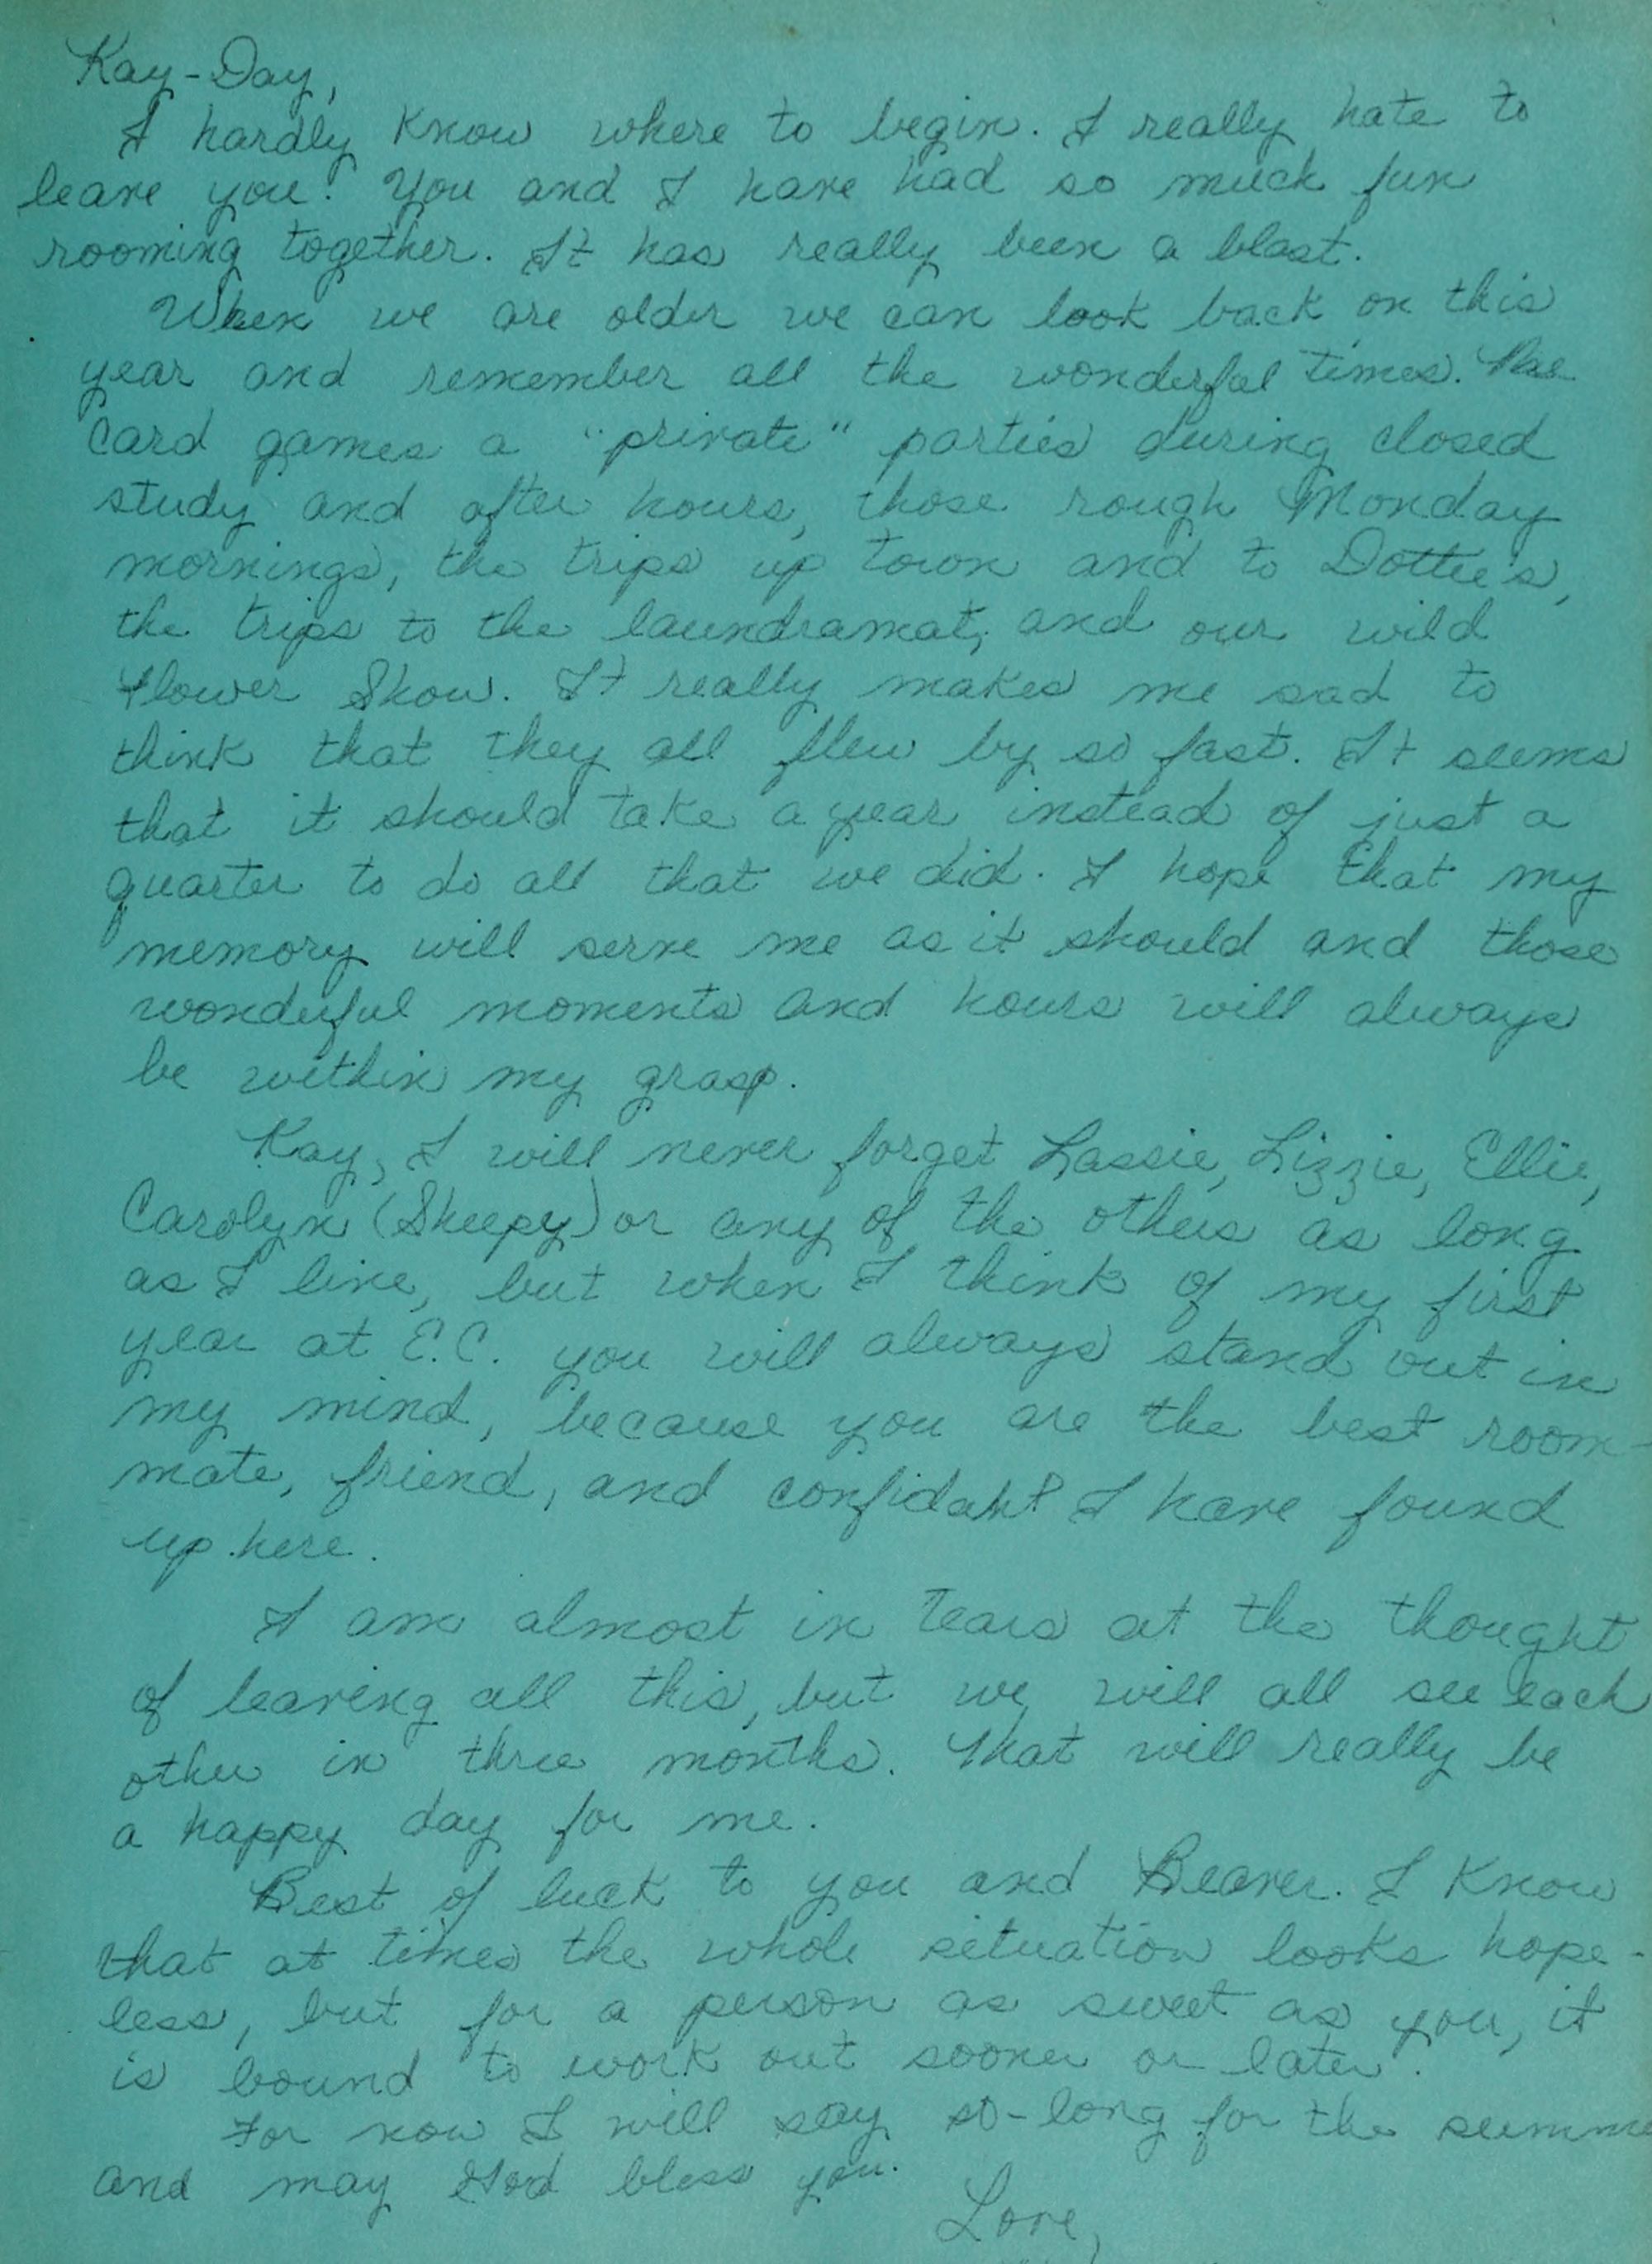 Kay-Day,
I hardly know where to begin. I really hate to
leave you! You and I have had so much fun
rooming together. It has really been a blast.
When we are older we can look back on this
year and remember all the wonderful times. The
card games a "private" parties during closed
study and after hours, those rough Monday
mornings, the trips up town and to Dottie's,
the trips to the laundramat, and our wild
Flower Show. It really makes me sad to
think that they all flew by so fast. It seems
that it should take a year instead of just a
quarter to do all that we did. I hope that my
memory will serve me as it should and those
wonderful moments and hours will always
be within my grasp.
Kay, I will never forget Lassie, Lizzie, Ellie,
Carolyn (Skeepy) or any of the others as long
as I live, but when I think of my first
year at E.C. you will always stand out in
my mind, because you are the best room-
mate, friend, and confidant I have found
up here.
I am almost in tears at the thought
of leaving all this, but we will all see each
other in three months. That will really be
a happy day for me.
Best of luck to you and Beaver. I know
that at times the whole situation looks hope-
less, but for a person as sweet as you, it
is bound to work out sooner or later.
For now I will say so-long for the summe
and may God bless you.
Love,